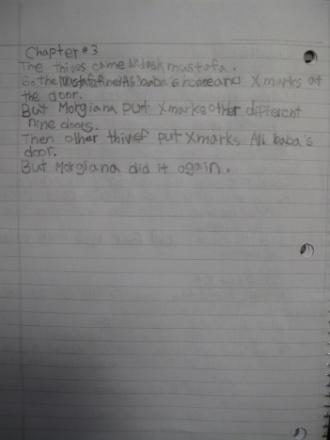 Chapter #3
The thives came ask mustafa.
So the Mustafa find Ali baba's house and X marks at
the door.
But Morgiana purt X marks other different
nine doors.
Then other thives put X marks Ali baba's
door.
But Morgiana did it again.